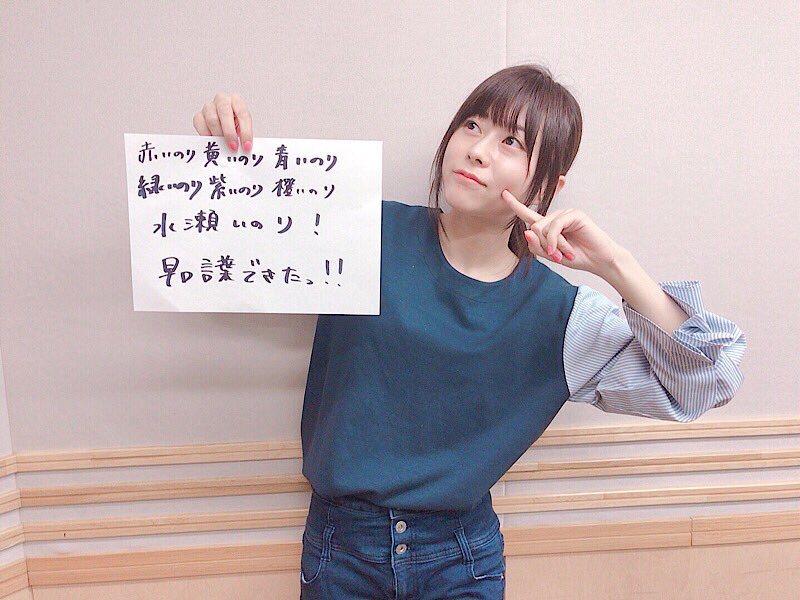 赤いのり 黄いのり 青いのり
緑いのり 紫いのり 橙いのり
水瀬いのり!
早口言葉できたっ!!